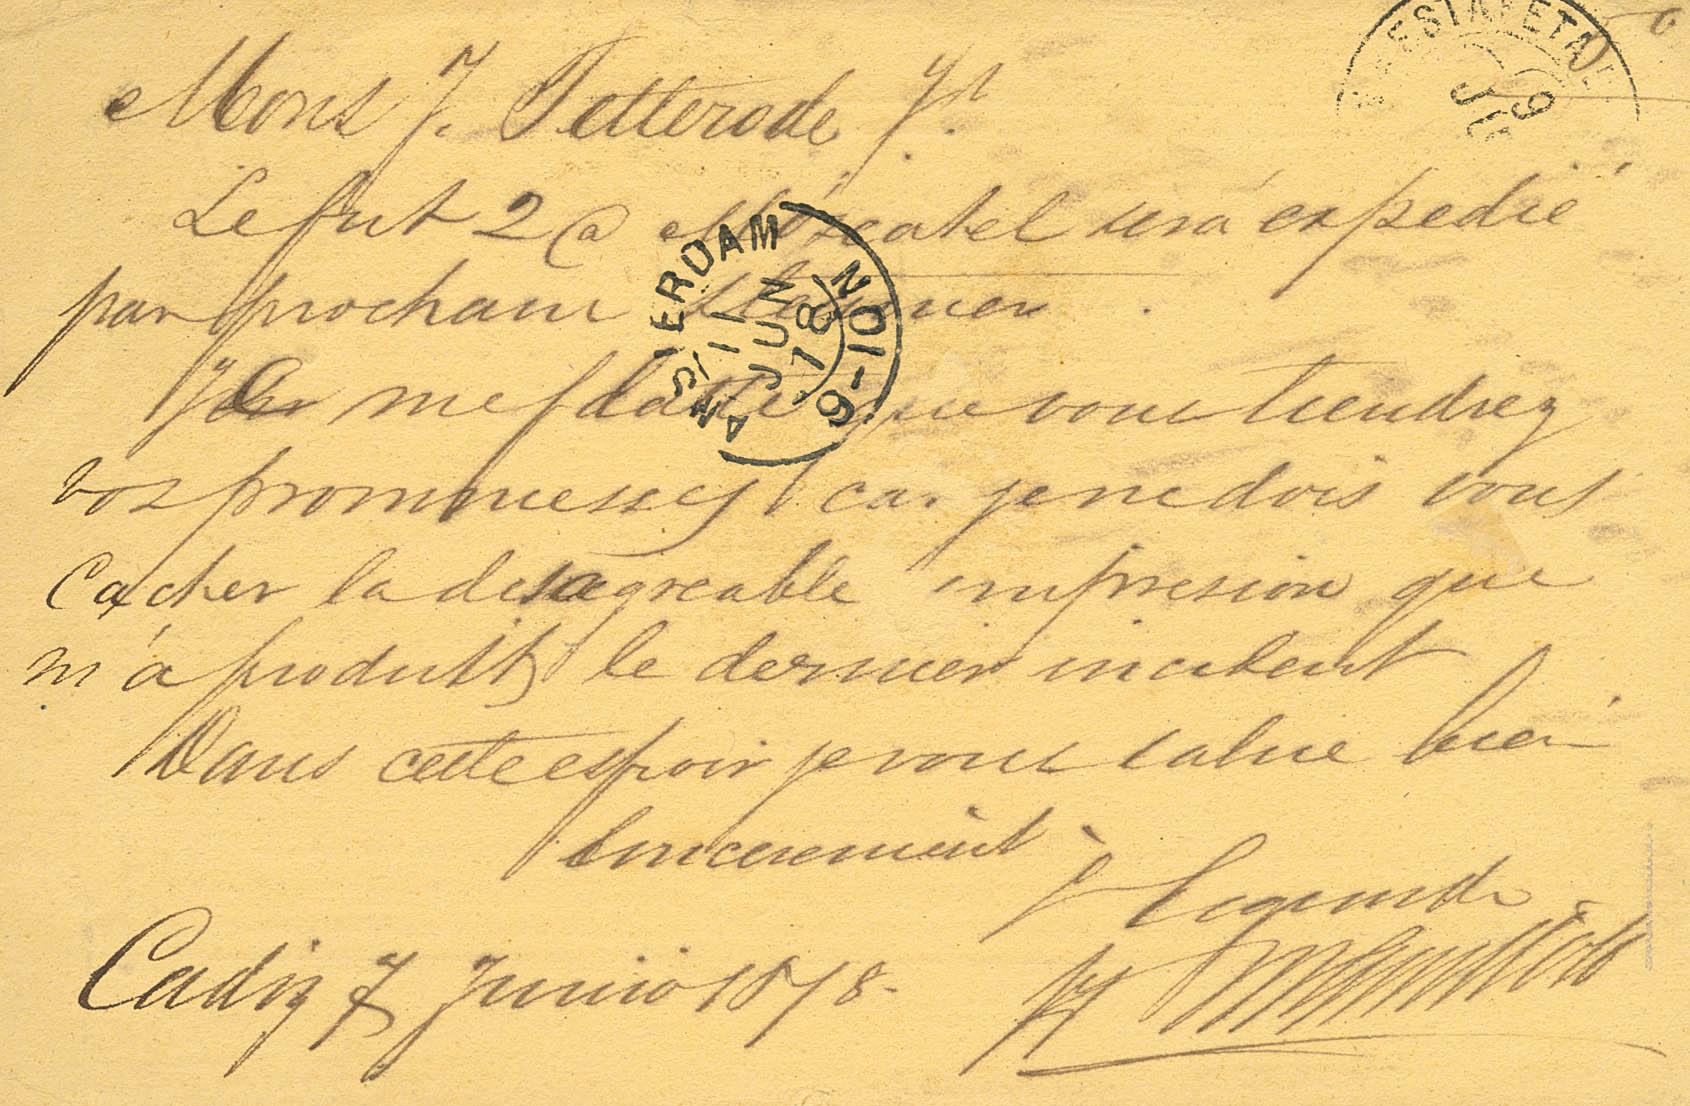 Mons J. Tetterode Jr.
Le fut 2 @ Moscatel será expedié
par prochain
Je me flatte que vous tiendrez
vos prommesses car je ne dois vous
Cacher la desagreable impresion que
m'a produit le dernier incident
Dans cette espoir je vous salue bien
sincerement
Cadiz 7 Junio 1878.
AMSTERDAM
11 JUN 78
NOI-6